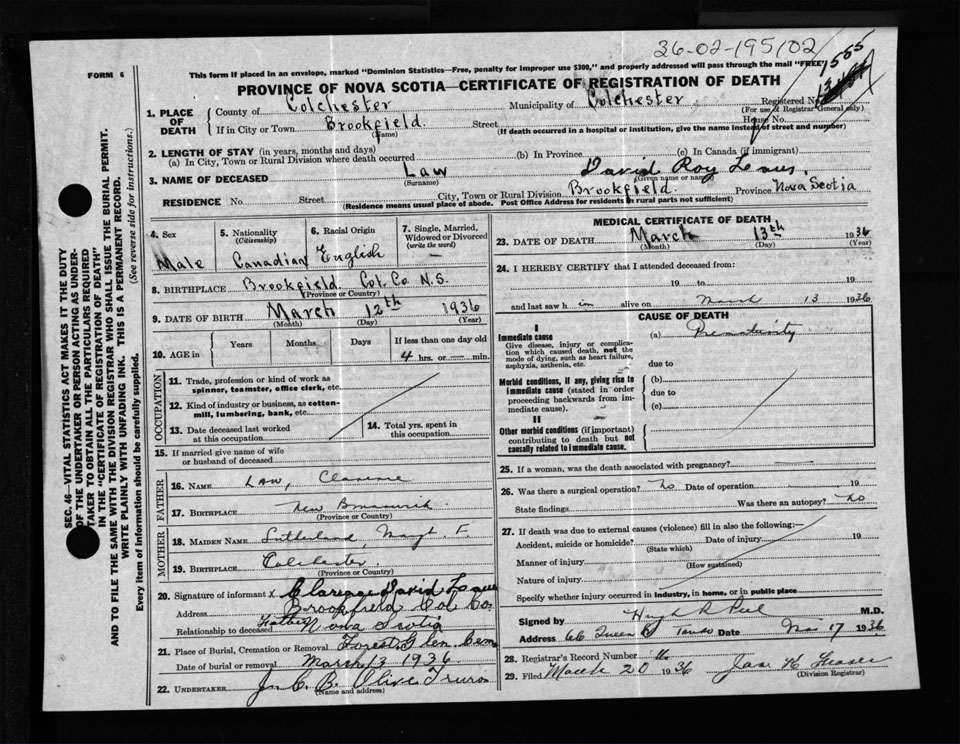 36-02-195102
FORM 6
This form if placed in an envelope, marked "Dominion Statistics—Free, penalty for improper use $300," and properly addressed will pass through the mail "FREE"
1585
PROVINCE OF NOVA SCOTIA—CERTIFICATE OF REGISTRATION OF DEATH
SEC. 46—VITAL STATISTICS ACT MAKES IT THE DUTY
OF THE UNDERTAKER OR PERSON ACTING AS UNDER-
TAKER TO OBTAIN ALL THE PARTICULARS REQUIRED
IN THE "CERTIFICATE OF REGISTRATION OF DEATH"
AND TO FILE THE SAME WITH THE DIVISION REGISTRAR WHO SHALL ISSUE THE BURIAL PERMIT.
WRITE PLAINLY WITH UNFADING INK. THIS IS A PERMANENT RECORD.
Every item of information should be carefully supplied. (See reverse side for instructions.)
1. PLACE OF DEATH
County of Colchester Municipality of Colchester Registered No.
(For use of Registrar General only)
If in City or Town Brookfield. Street House No.
(Name) (If death occurred in a hospital or institution, give the name instead of street and number)
2. LENGTH OF STAY (in years, months and days)
(a) In City, Town or Rural Division where death occurred (b) In Province (c) In Canada (if immigrant)
3. NAME OF DECEASED Law David Roy Louis.
(Surname) (Given name or names)
RESIDENCE No. Street City, Town or Rural Division Brookfield. Province Nova Scotia
(Residence means usual place of abode. Post Office Address for residents in rural parts not sufficient)
4. Sex 5. Nationality (Citizenship) 6. Racial Origin 7. Single, Married, Widowed or Divorced (write the word)
Male Canadian English —
8. BIRTHPLACE Brookfield. Col. Co. N.S.
(Province or Country)
9. DATE OF BIRTH March 12th 1936
(Month) (Day) (Year)
10. AGE in Years Months Days If less than one day old
4 hrs. or — min.
OCCUPATION
11. Trade, profession or kind of work as
spinner, teamster, office clerk, etc.
12. Kind of industry or business, as cotton-
mill, lumbering, bank, etc.
13. Date deceased last worked
at this occupation
14. Total yrs. spent in
this occupation
15. If married give name of wife
or husband of deceased
FATHER
16. NAME Law, Clarence
17. BIRTHPLACE New Brunswick
(Province or Country)
MOTHER
18. MAIDEN NAME Sutherland, F.
19. BIRTHPLACE Colchester.
(Province or Country)
20. Signature of informant X Clarence David
Address Brookfield Col Co.
Relationship to deceased Father Nova Scotia
21. Place of Burial, Cremation or Removal Forest Glen Cem
Date of burial or removal March 13 1936
22. UNDERTAKER J. C. B. Olive Truro
(Name and address)
MEDICAL CERTIFICATE OF DEATH
23. DATE OF DEATH March 13th 1936
(Month) (Day) (Year)
24. I HEREBY CERTIFY that I attended deceased from:
19 to 19
and last saw h im alive on March 13 1936
CAUSE OF DEATH
I
Immediate cause
Give disease, injury or complica-
tion which caused death, not the
mode of dying, such as heart failure,
asphyxia, asthenia, etc.
(a) Prematurity
due to
Morbid conditions, if any, giving rise to
immediate cause (stated in order
proceeding backwards from im-
mediate cause).
(b)
due to
(c)
II
Other morbid conditions (if important)
contributing to death but not
causally related to immediate cause.
25. If a woman, was the death associated with pregnancy? —
26. Was there a surgical operation? No Date of operation 19
State findings Was there an autopsy? No
27. If death was due to external causes (violence) fill in also the following:—
Accident, suicide or homicide? Date of injury 19
(State which)
Manner of injury
(How sustained)
Nature of injury
Specify whether injury occurred in industry, in home, or in public place
Signed by Hugh R Peel M.D.
Address 66 Queen Truro Date Mar 17 1936
28. Registrar's Record Number
29. Filed March 20 1936 Jas. K Fraser
(Division Registrar)